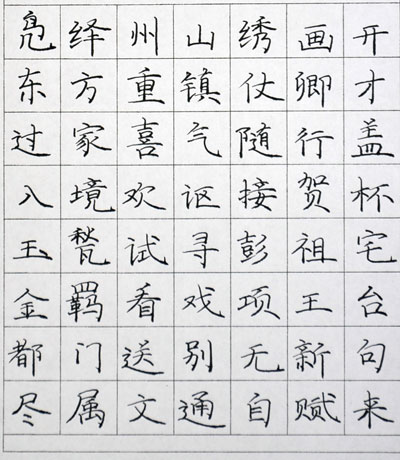 凫绎州山绣画开
东方重镇仗卿才
过家喜气随行盖
入境欢讴接贺杯
玉甃试寻彭祖宅
金羁看戏项王台
都门送别无新句
尽属文通自赋来